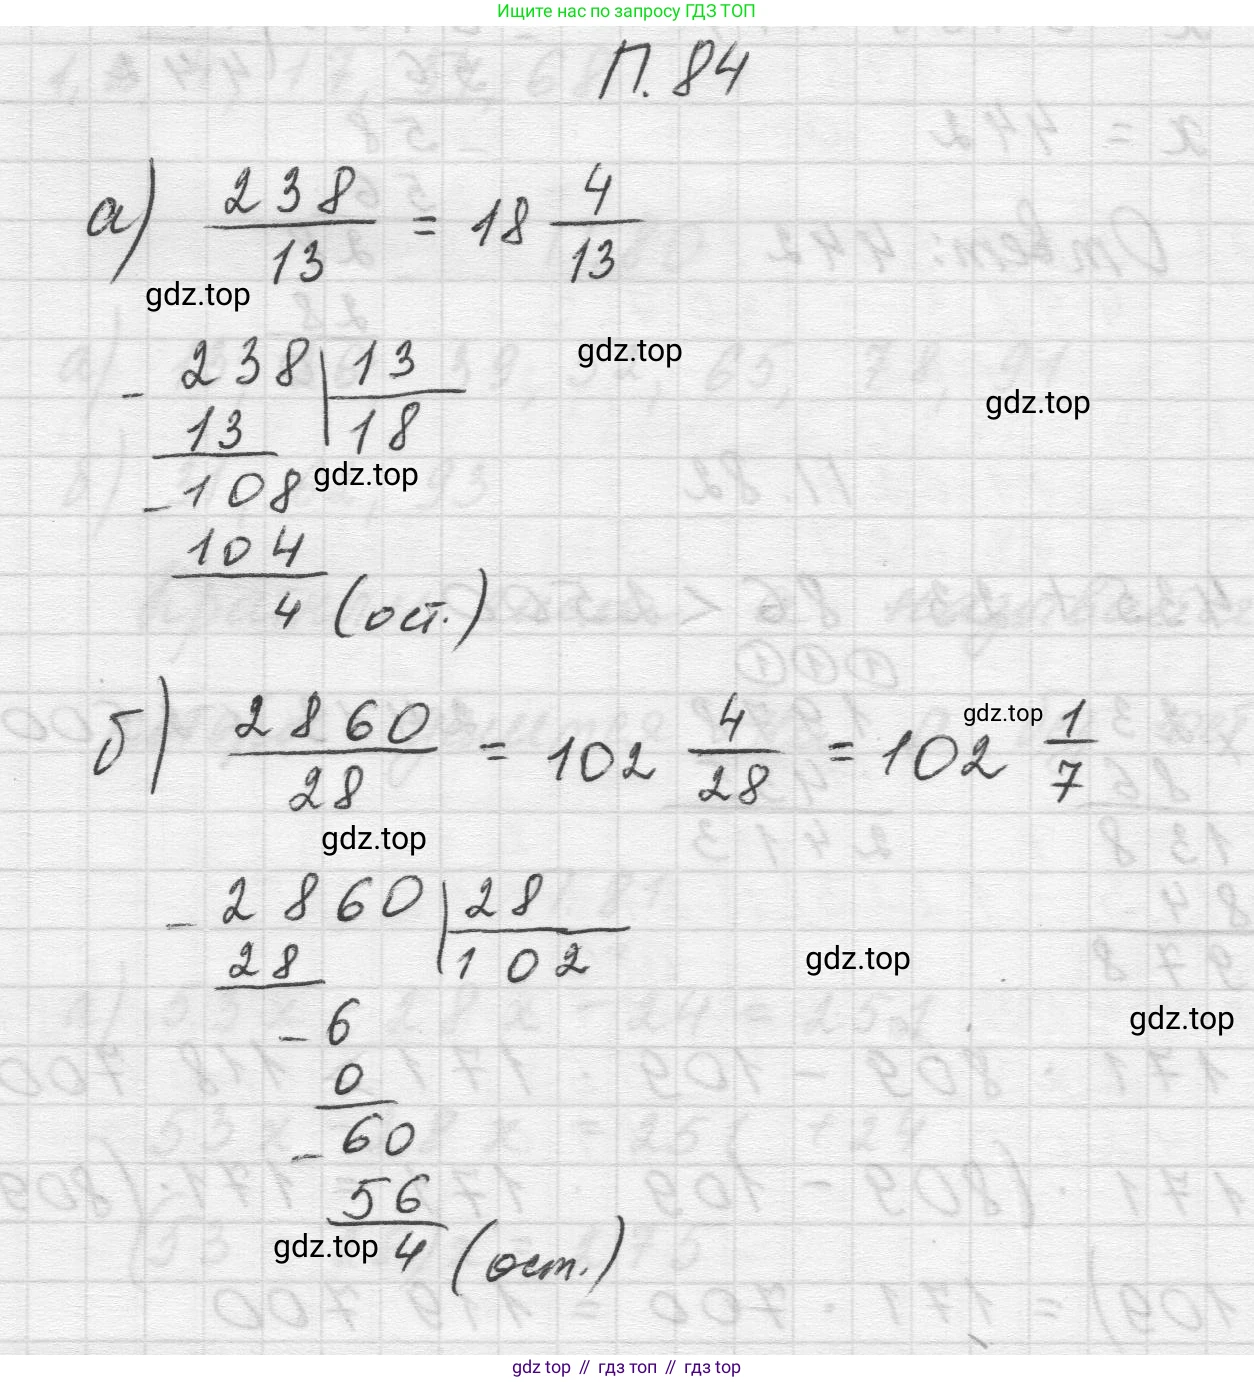 Ищите нас по запросу ГДЗ ТОП
П. 84
а) 238/13 = 18 4/13
gdz.top
gdz.top
gdz.top
- 238 | 13
13 | 18
gdz.top
- 108
104
4 (ост.)
б) 2860/28 = 102 4/28 = 102 1/7
gdz.top
gdz.top
- 2860 | 28
28 | 102
gdz.top
- 6
gdz.top
0
- 60
56
gdz.top
4 (ост.)
gdz top // гдз топ // гдз top